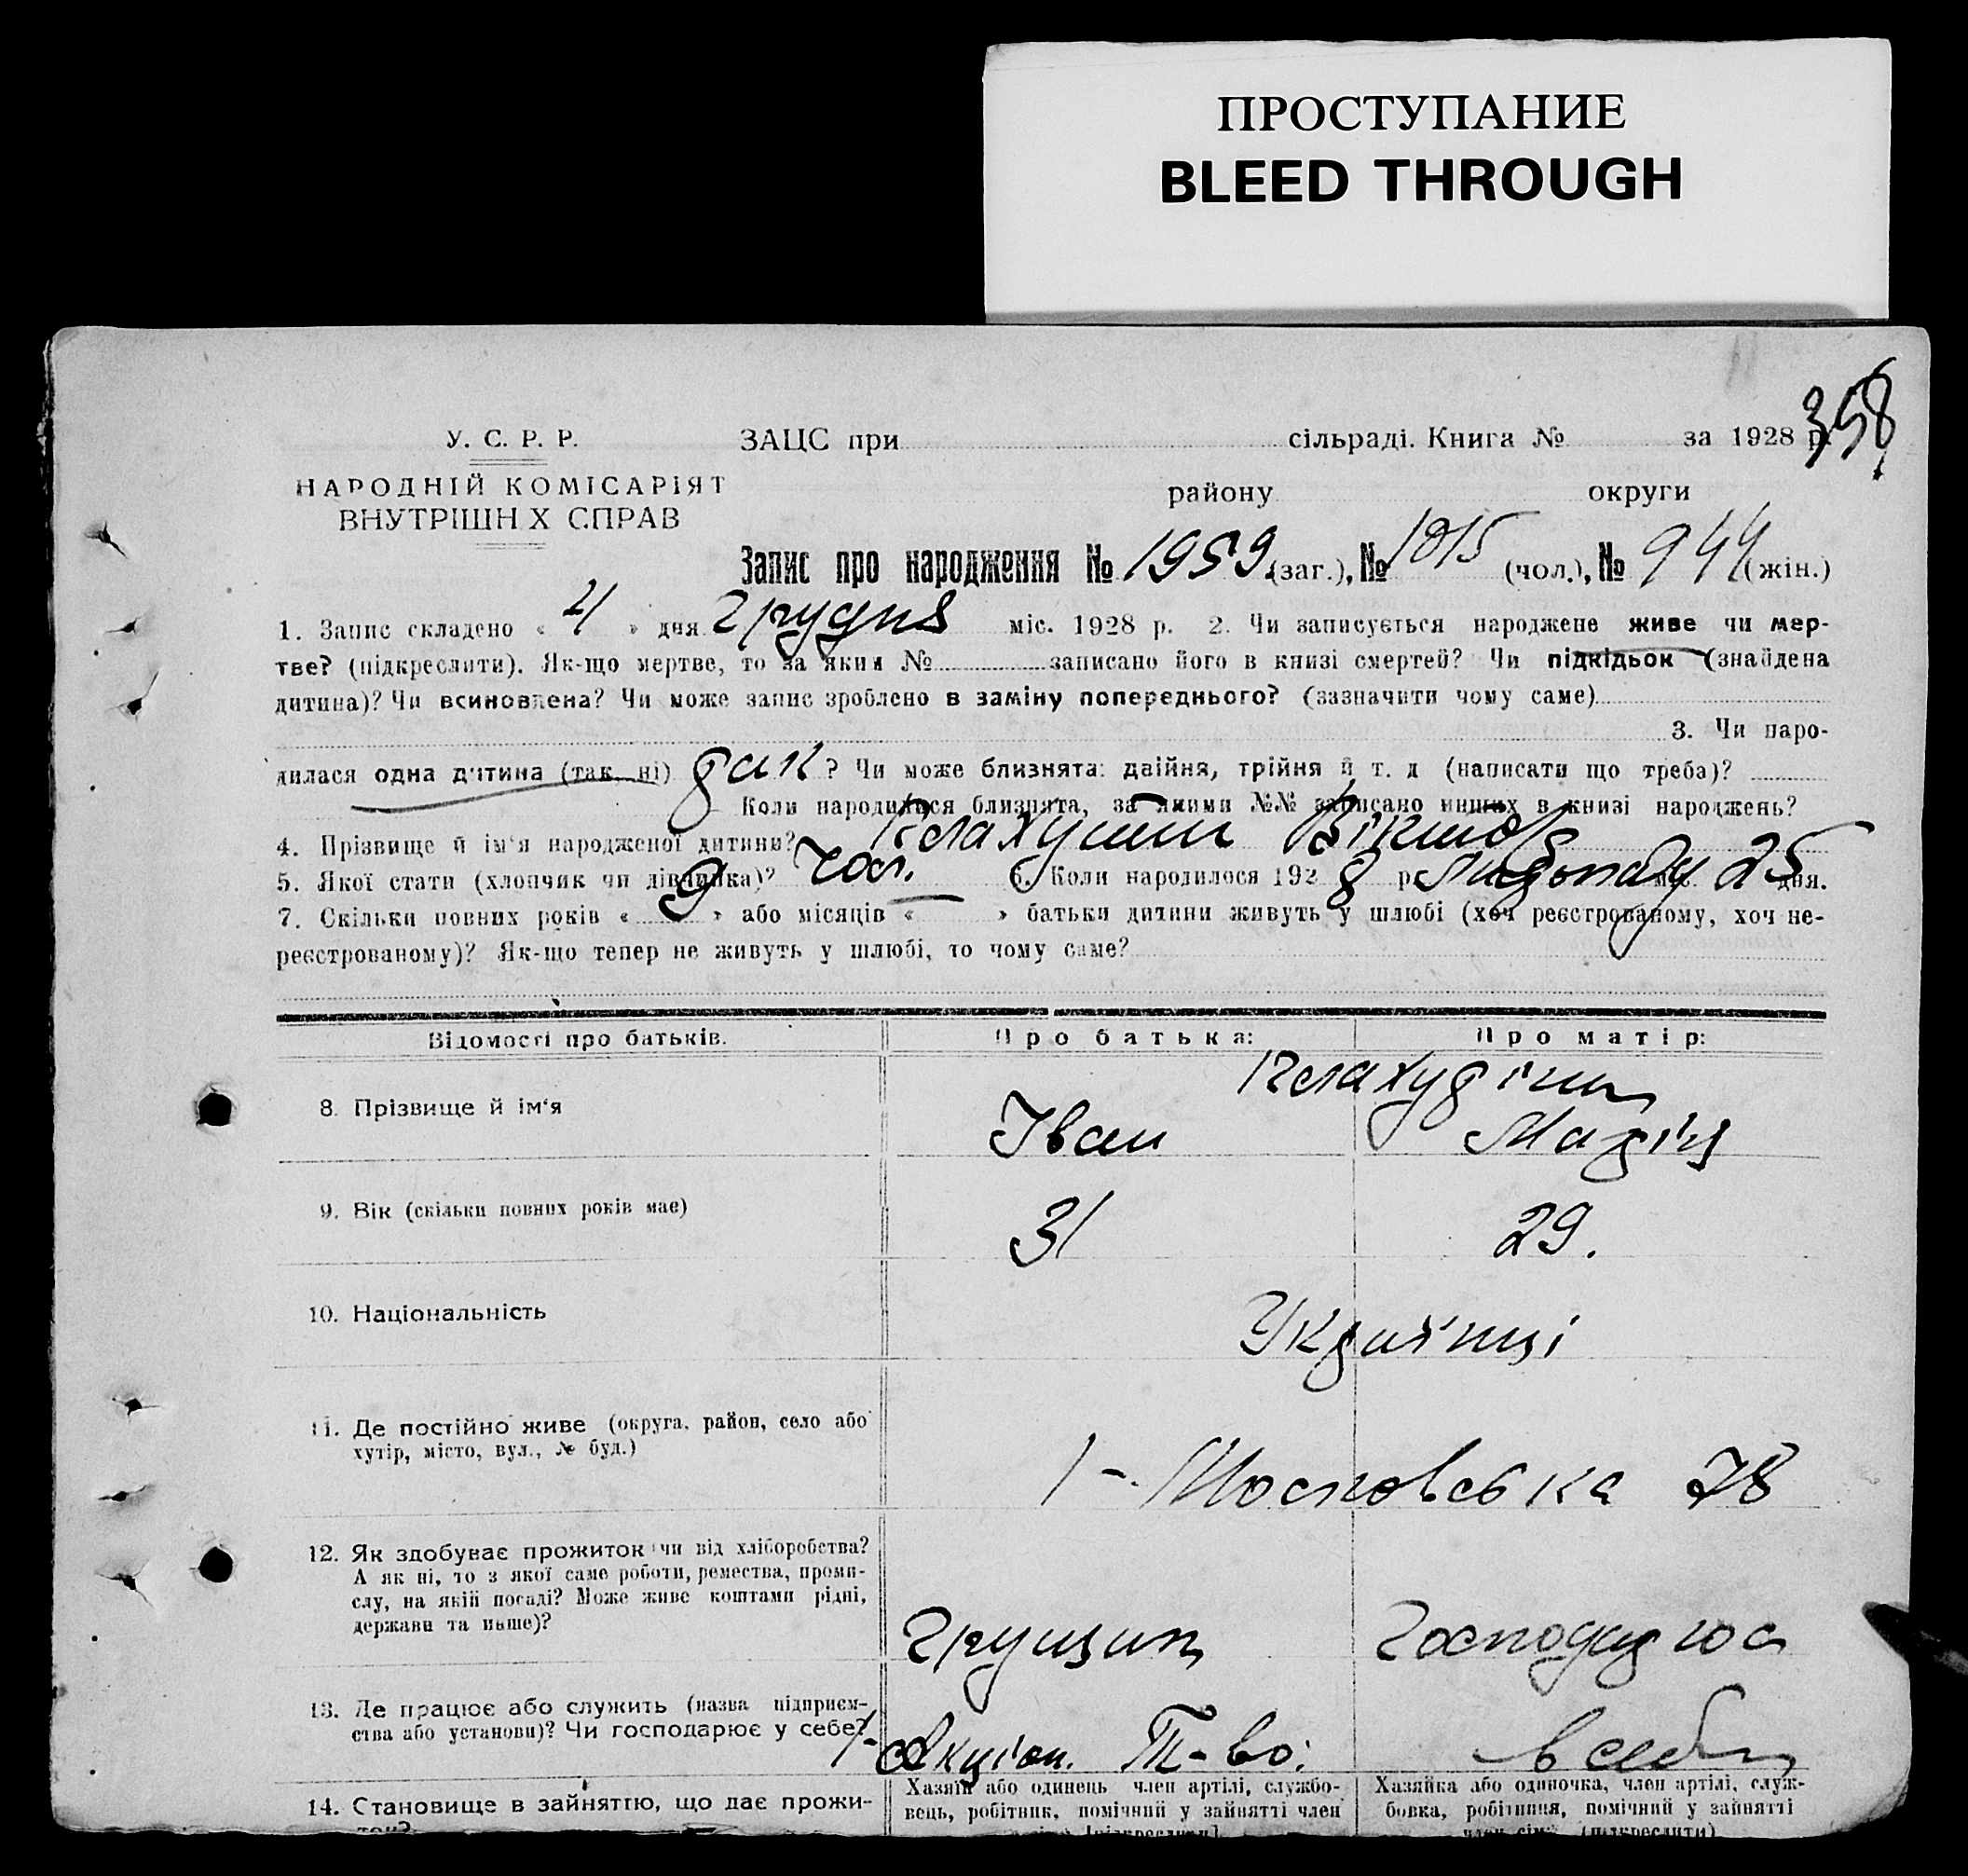 ПРОСТУПАНИЕ
BLEED THROUGH
358
У. С. Р. Р.
НАРОДНІЙ КОМІСАРІЯТ
ВНУТРІШН Х СПРАВ
ЗАЦС при сільраді. Книга № за 1928 р.
району округи
Запис про народження № 1959 (заг.), № 1015 (чол.), № 944 (жін.)
1. Запис складено « 4 » дня Грудня міс. 1928 р. 2. Чи записується народжене живе чи мер-
тве? (підкреслити). Як-що мертве, то за яким № записано його в книзі смертей? Чи підкідьок (знайдена
дитина)? Чи всиновлена? Чи може запис зроблено в заміну попереднього? (зазначити чому саме)
3. Чи наро-
дилася одна дитина (так, ні) так ? Чи може близнята: двійня, трійня й т. д (написати що треба)?
Коли народилися близнята, за якими №№ записано инших в книзі народжень?
4. Прізвище й ім'я народженої дитини? Віктор
5. Якої стати (хлопчик чи дівчинка)? Чол. 6. Коли народилося 1928 р. Листопаду міс. 25 дня.
7. Скільки повних років « 9 » або місяців « — » батьки дитини живуть у шлюбі (хоч реєстрованому, хоч не-
реєстрованому)? Як-що тепер не живуть у шлюбі, то чому саме?
Відомості про батьків. Про батька: Про матір:
8. Прізвище й ім'я Іван Марія
9. Вік (скільки повних років має) 31 29.
10. Національність Українці
11. Де постійно живе (округа, район, село або
хутір, місто, вул., № буд.)
1-Московська 78
12. Як здобуває прожиток чи від хліборобства?
А як ні, то з якої саме роботи, ремества, промис-
лу, на якій посаді? Може живе коштами рідні,
держави та инше)?
Господарює
13. Де працює або служить (назва підприєм-
ства або установи)? Чи господарює у себе?
Акціон. Т-во. в себе
14. Становище в зайняттю, що дає прожи-
ток?
Хазяїн або одинець член артілі, службо-
вець, робітник, помічний у зайнятті член
Хазяйка або одиночка, член артілі, служ-
бовка, робітниця, помічний у зайнятті
член сім'ї (підкреслити)